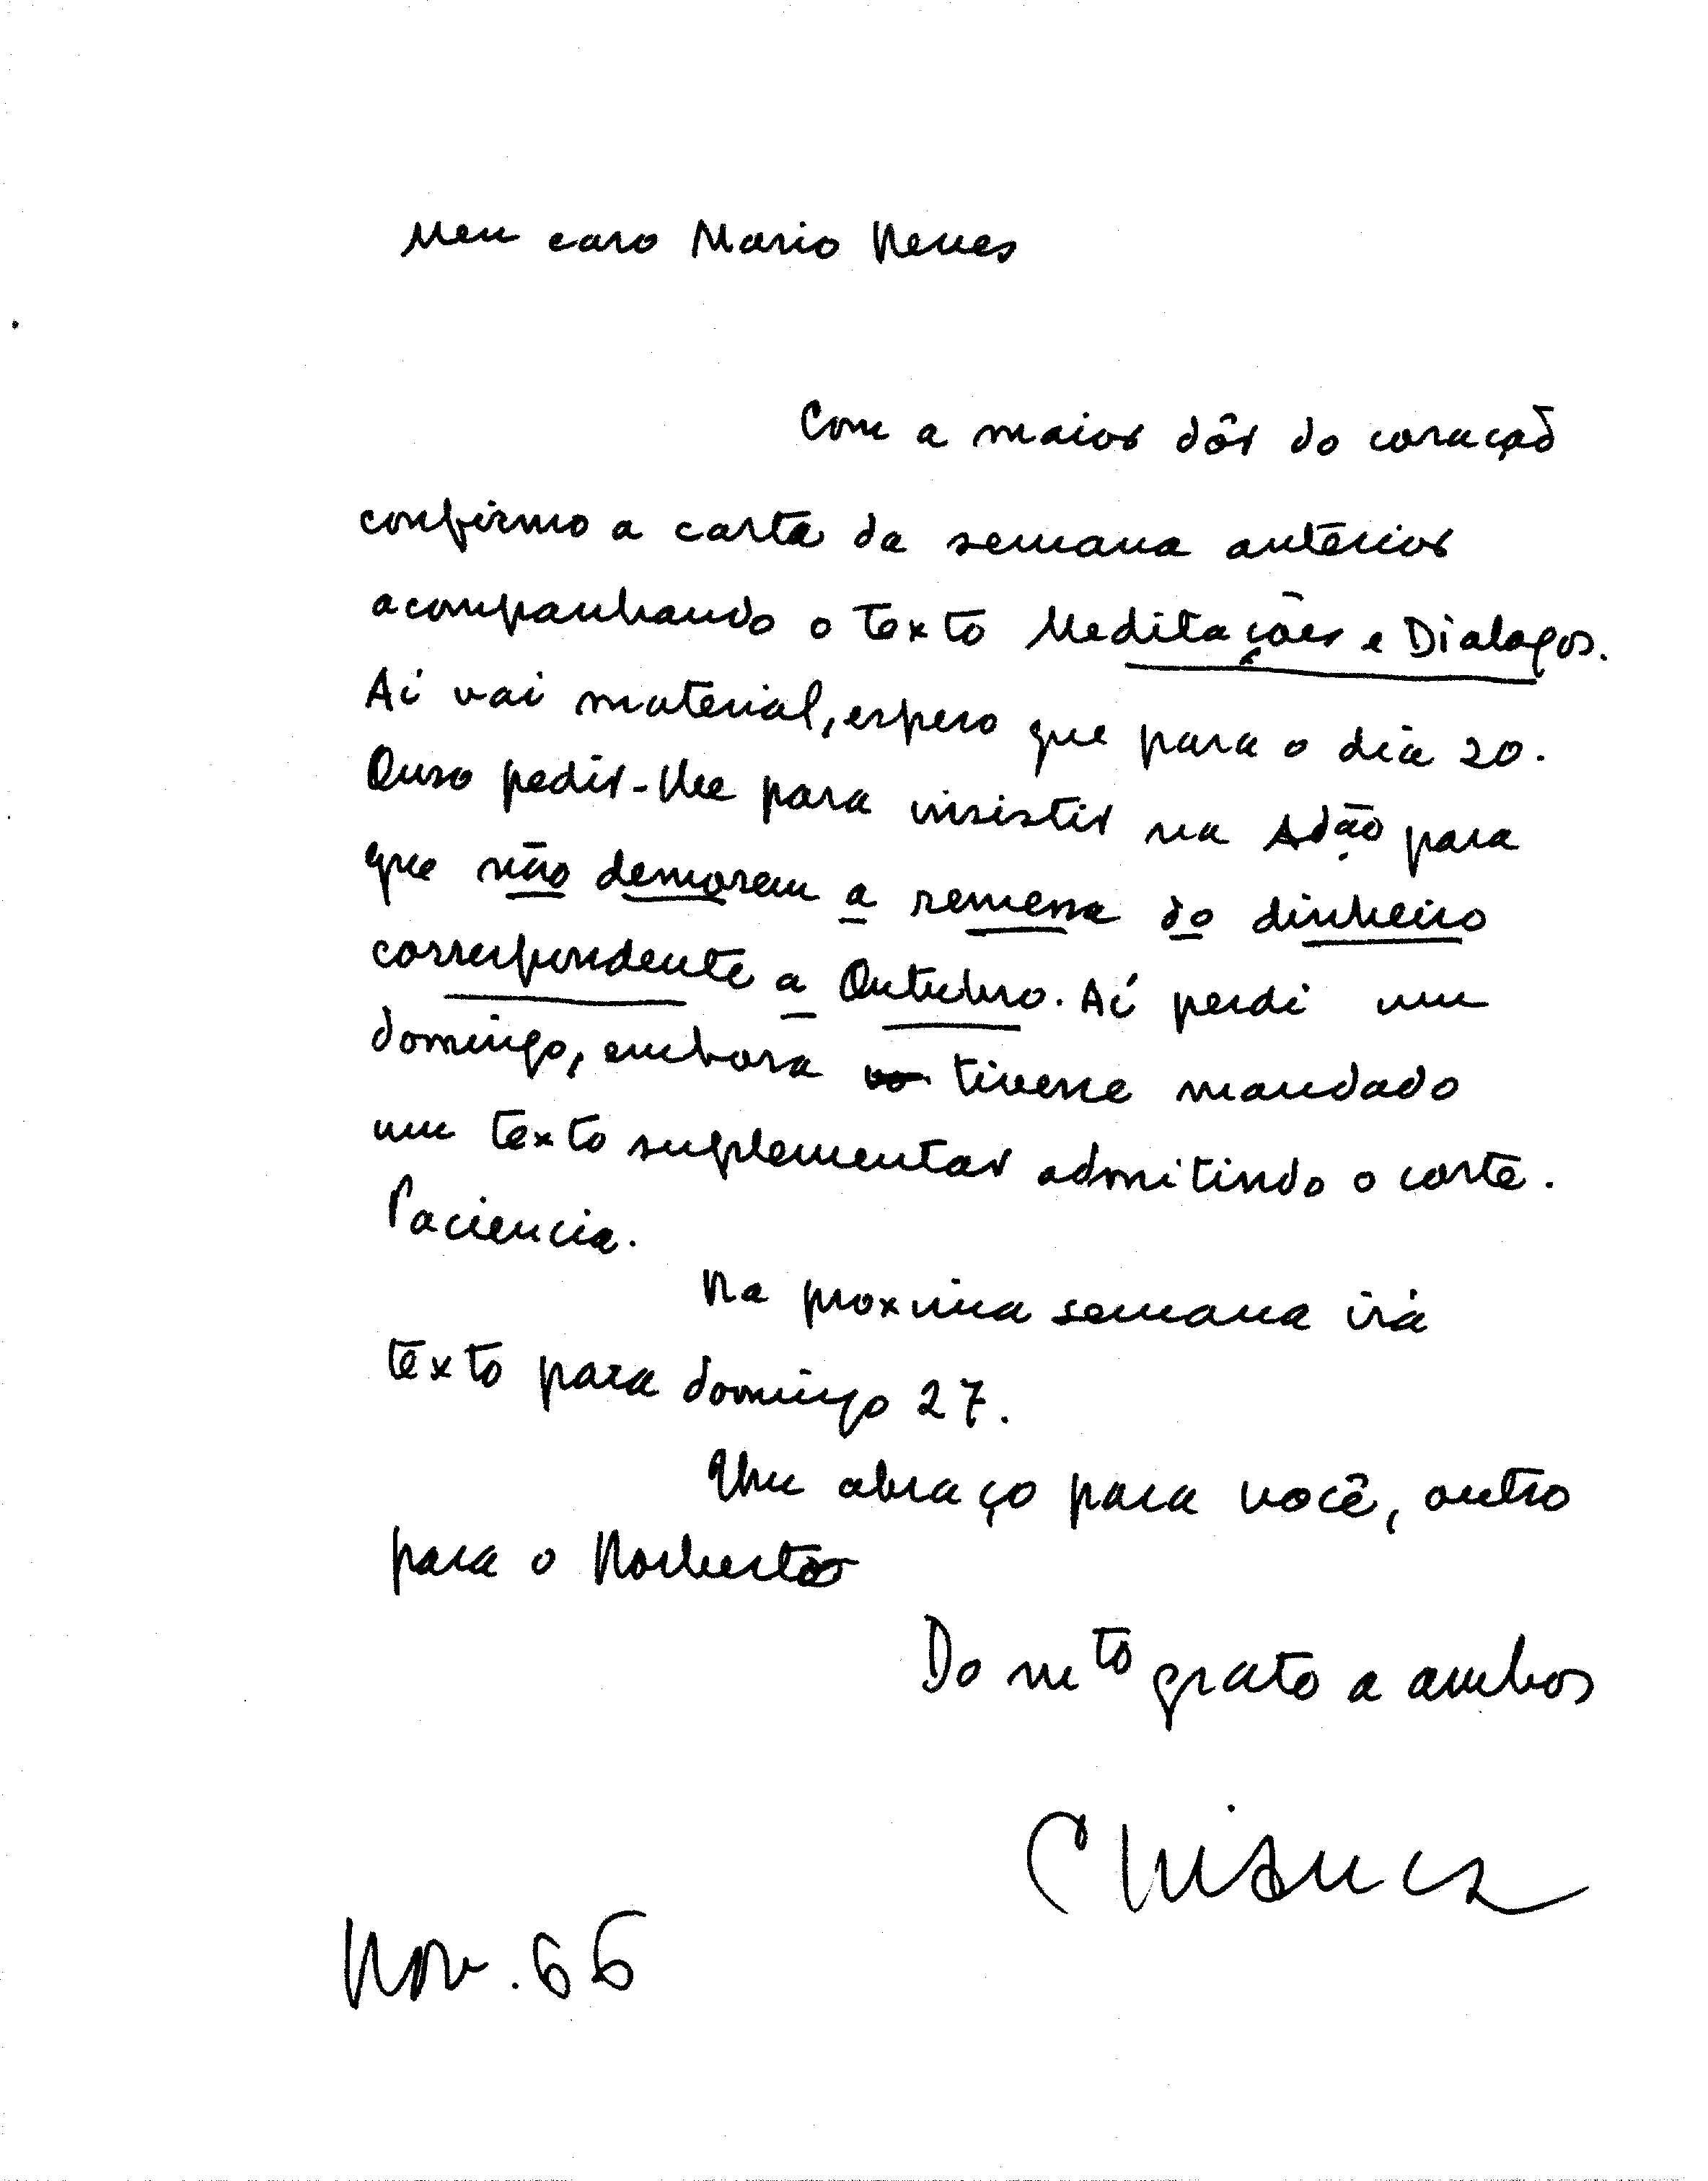 Meu caro Mario Neves
Com a maior dôr do coração
confirmo a carta da semana anterior
acompanhando o texto Meditações e Dialagos.
Aí vai material, espero que para o dia 20.
Ouso pedir-lhe para insistir na Adão para
que não demorem a remessa do dinheiro
correspondente a Outubro. Aí perdi um
domingo, embora tivesse mandado
um texto suplementar admitindo o corte.
Paciencia.
Na proxima semana irá
texto para domingo 27.
Um abraço para você, outro
para o Norberto
Do mto grato a ambos
Nov. 66